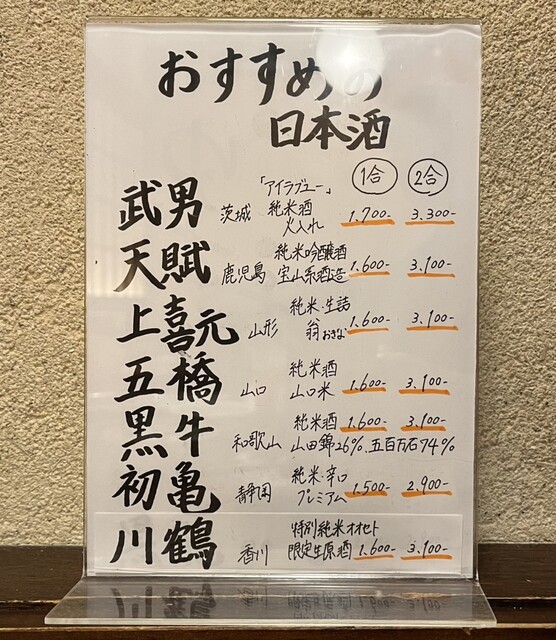 おすすめの
日本酒
1合 2合
武男 茨城 「アイラブユー」 純米酒 火入れ 1.700- 3.300-
天賦 鹿児島 純米吟醸酒 宝山系酒造 1.600- 3.100-
上喜元 山形 純米・生詰 翁 おきな 1.600- 3.100-
五橋 山口 純米酒 山口米 1.600- 3.100-
黒牛 和歌山 純米酒 山田錦26%、五百万石74% 1.600- 3.100-
初亀 静岡 純米・辛口 プレミアム 1.500- 2.900-
川鶴 香川 特別純米オオセト 限定生原酒 1.600- 3.100-